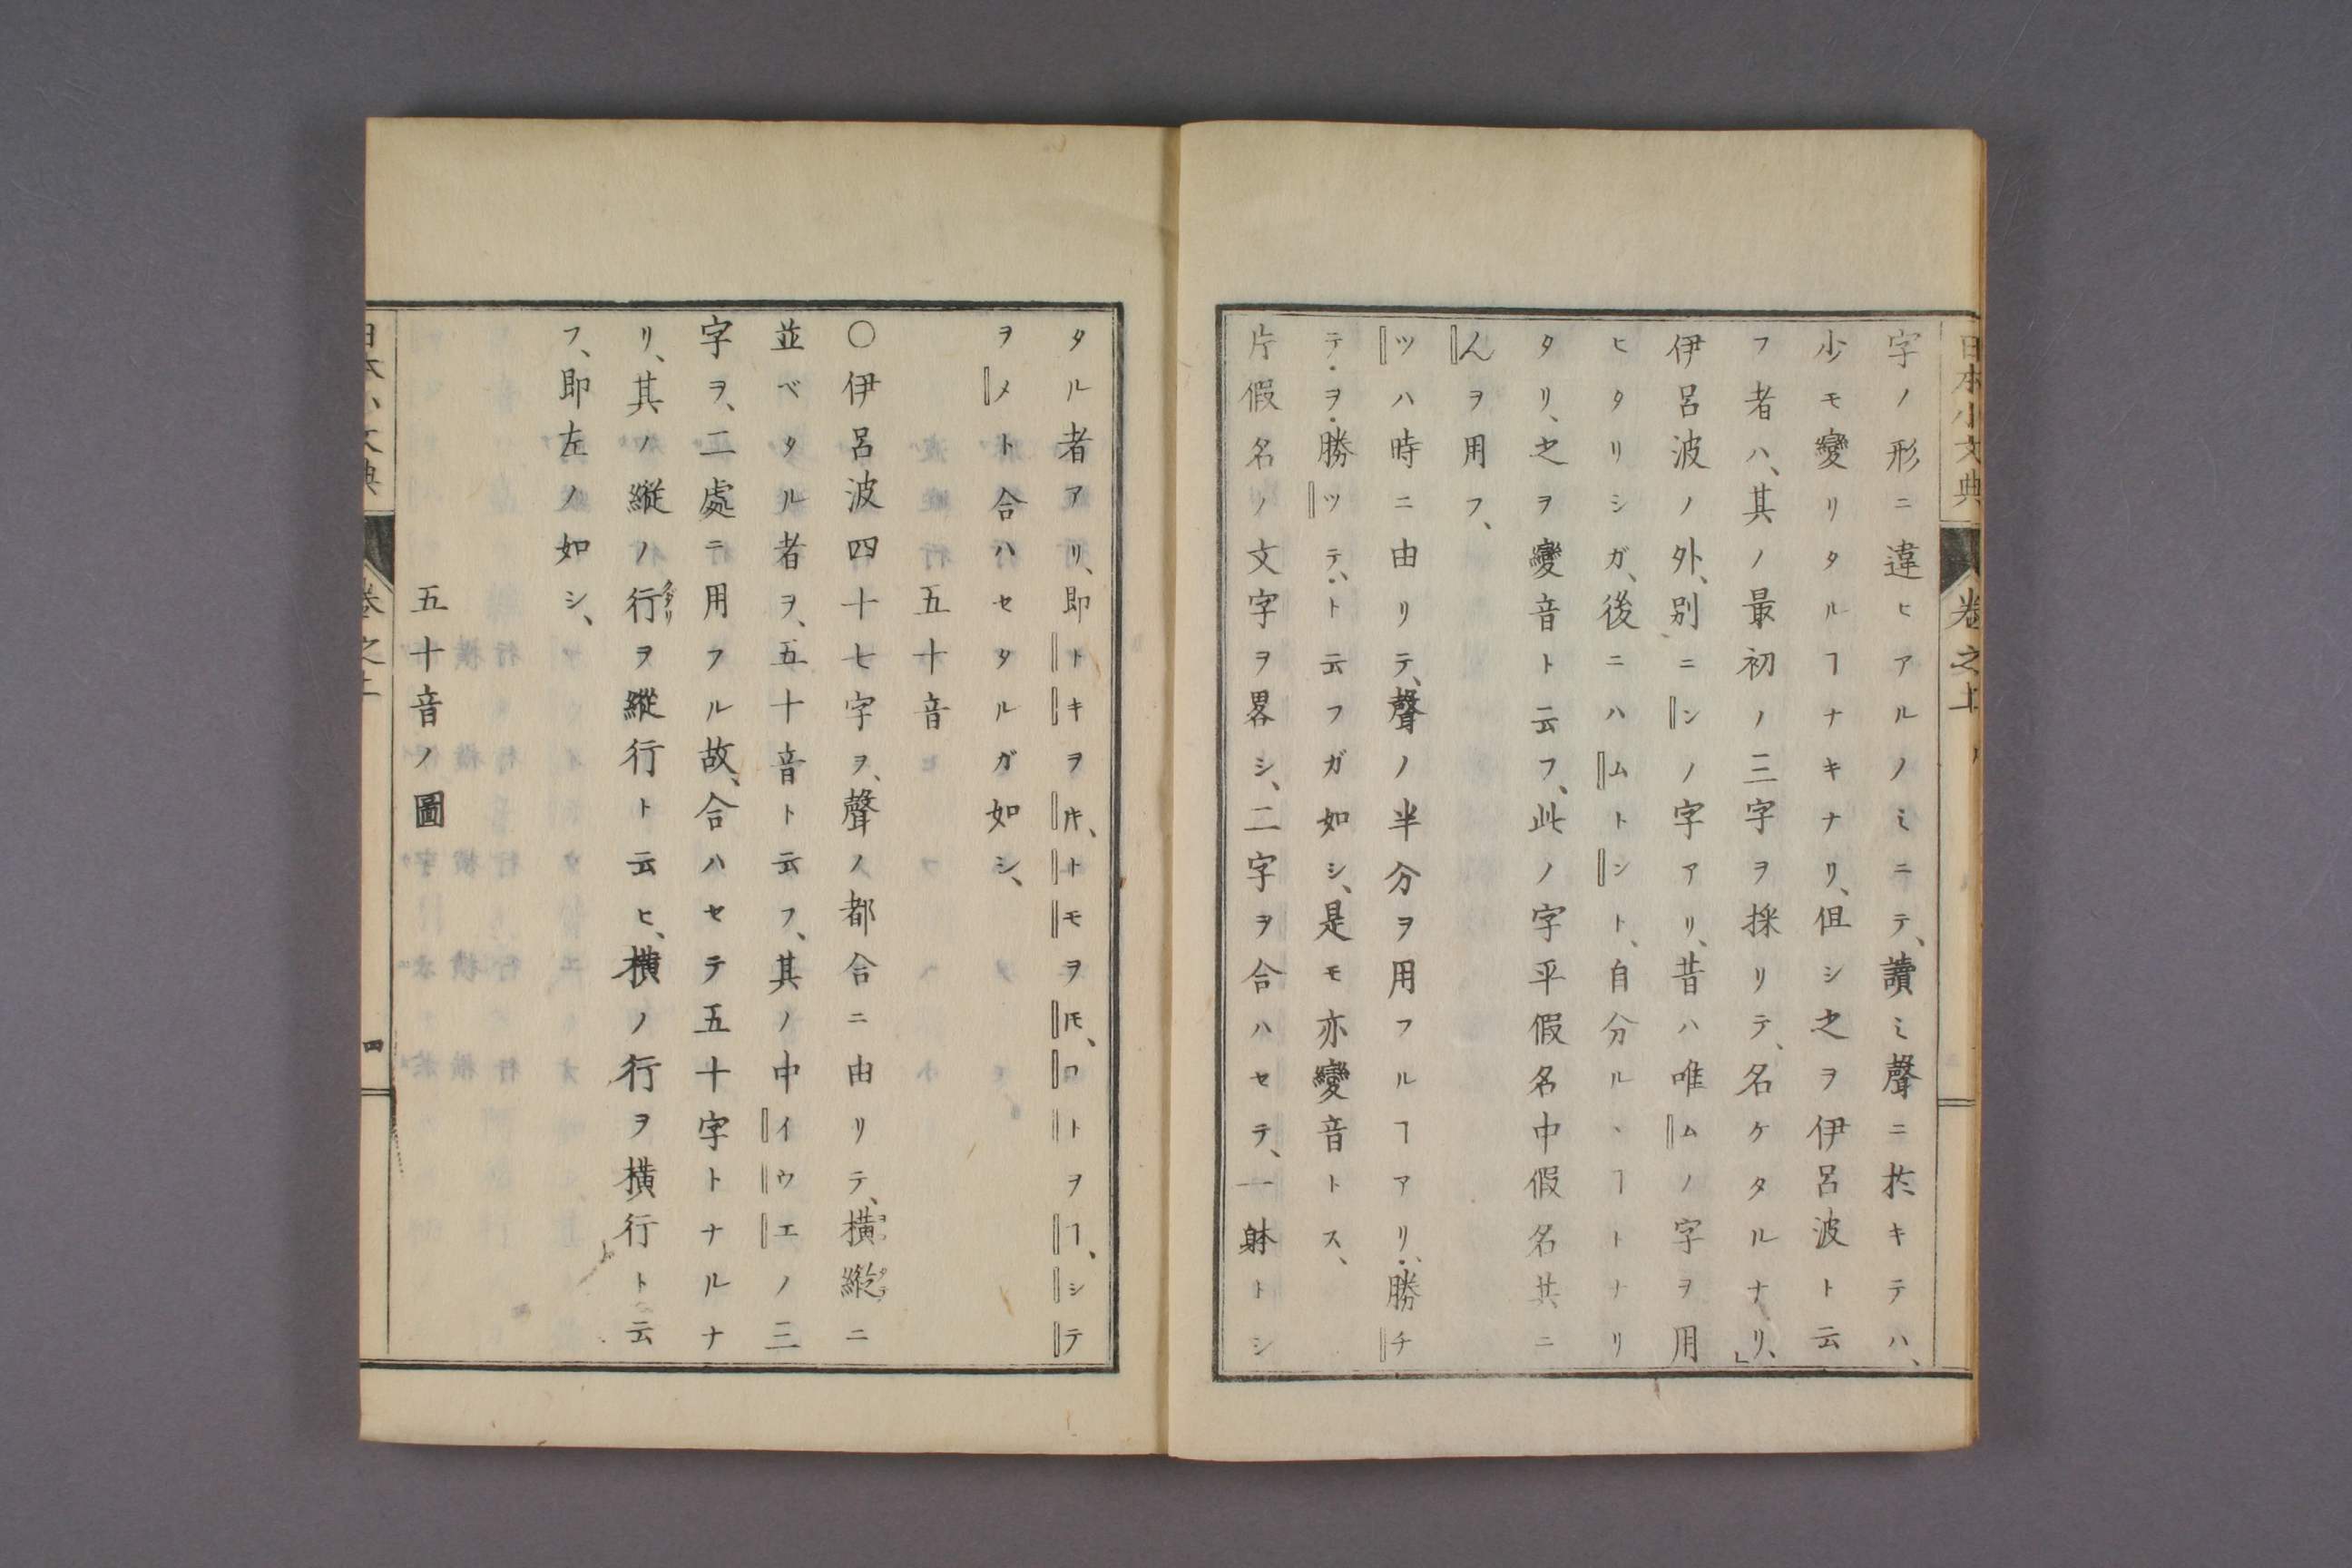 日本小文典 卷之上
字ノ形ニ違ヒアルノミニテ、讀ミ聲ニ於キテハ、
少モ變リタルヿナキナリ、但シ之ヲ伊呂波ト云
フ者ハ、其ノ最初ノ三字ヲ採リテ、名ケタルナリ、」
伊呂波ノ外、別ニンノ字アリ、昔ハ唯ムノ字ヲ用
ヒタリシガ、後ニハムトント、自分ルヽヿトナリ
タリ、之ヲ變音ト云フ、此ノ字平假名中假名共ニ
んヲ用フ、
ツハ時ニ由リテ、聲ノ半分ヲ用フルヿアリ、勝チ
テ・ヲ・勝ツテ、ト云フガ如シ、是モ亦變音トス、
片假名ノ文字ヲ畧シ、二字ヲ合ハセテ、一躰トシ
タル者アリ、即トキヲ𪜈、トモヲ𪜈、コトヲヿ、シテ
ヲ〆ト合ハセタルガ如シ、
五十音
〇伊呂波四十七字ヲ、聲ノ都合ニ由リテ、横縱ニ
並ベタル者ヲ、五十音ト云フ、其ノ中イウエノ三
字ヲ、二處ニ用フル故、合ハセテ五十字トナルナ
リ、其ノ縱ノ行ヲ縱行ト云ヒ、横ノ行ヲ横行ト云
フ、即左ノ如シ、
五十音ノ圖
四